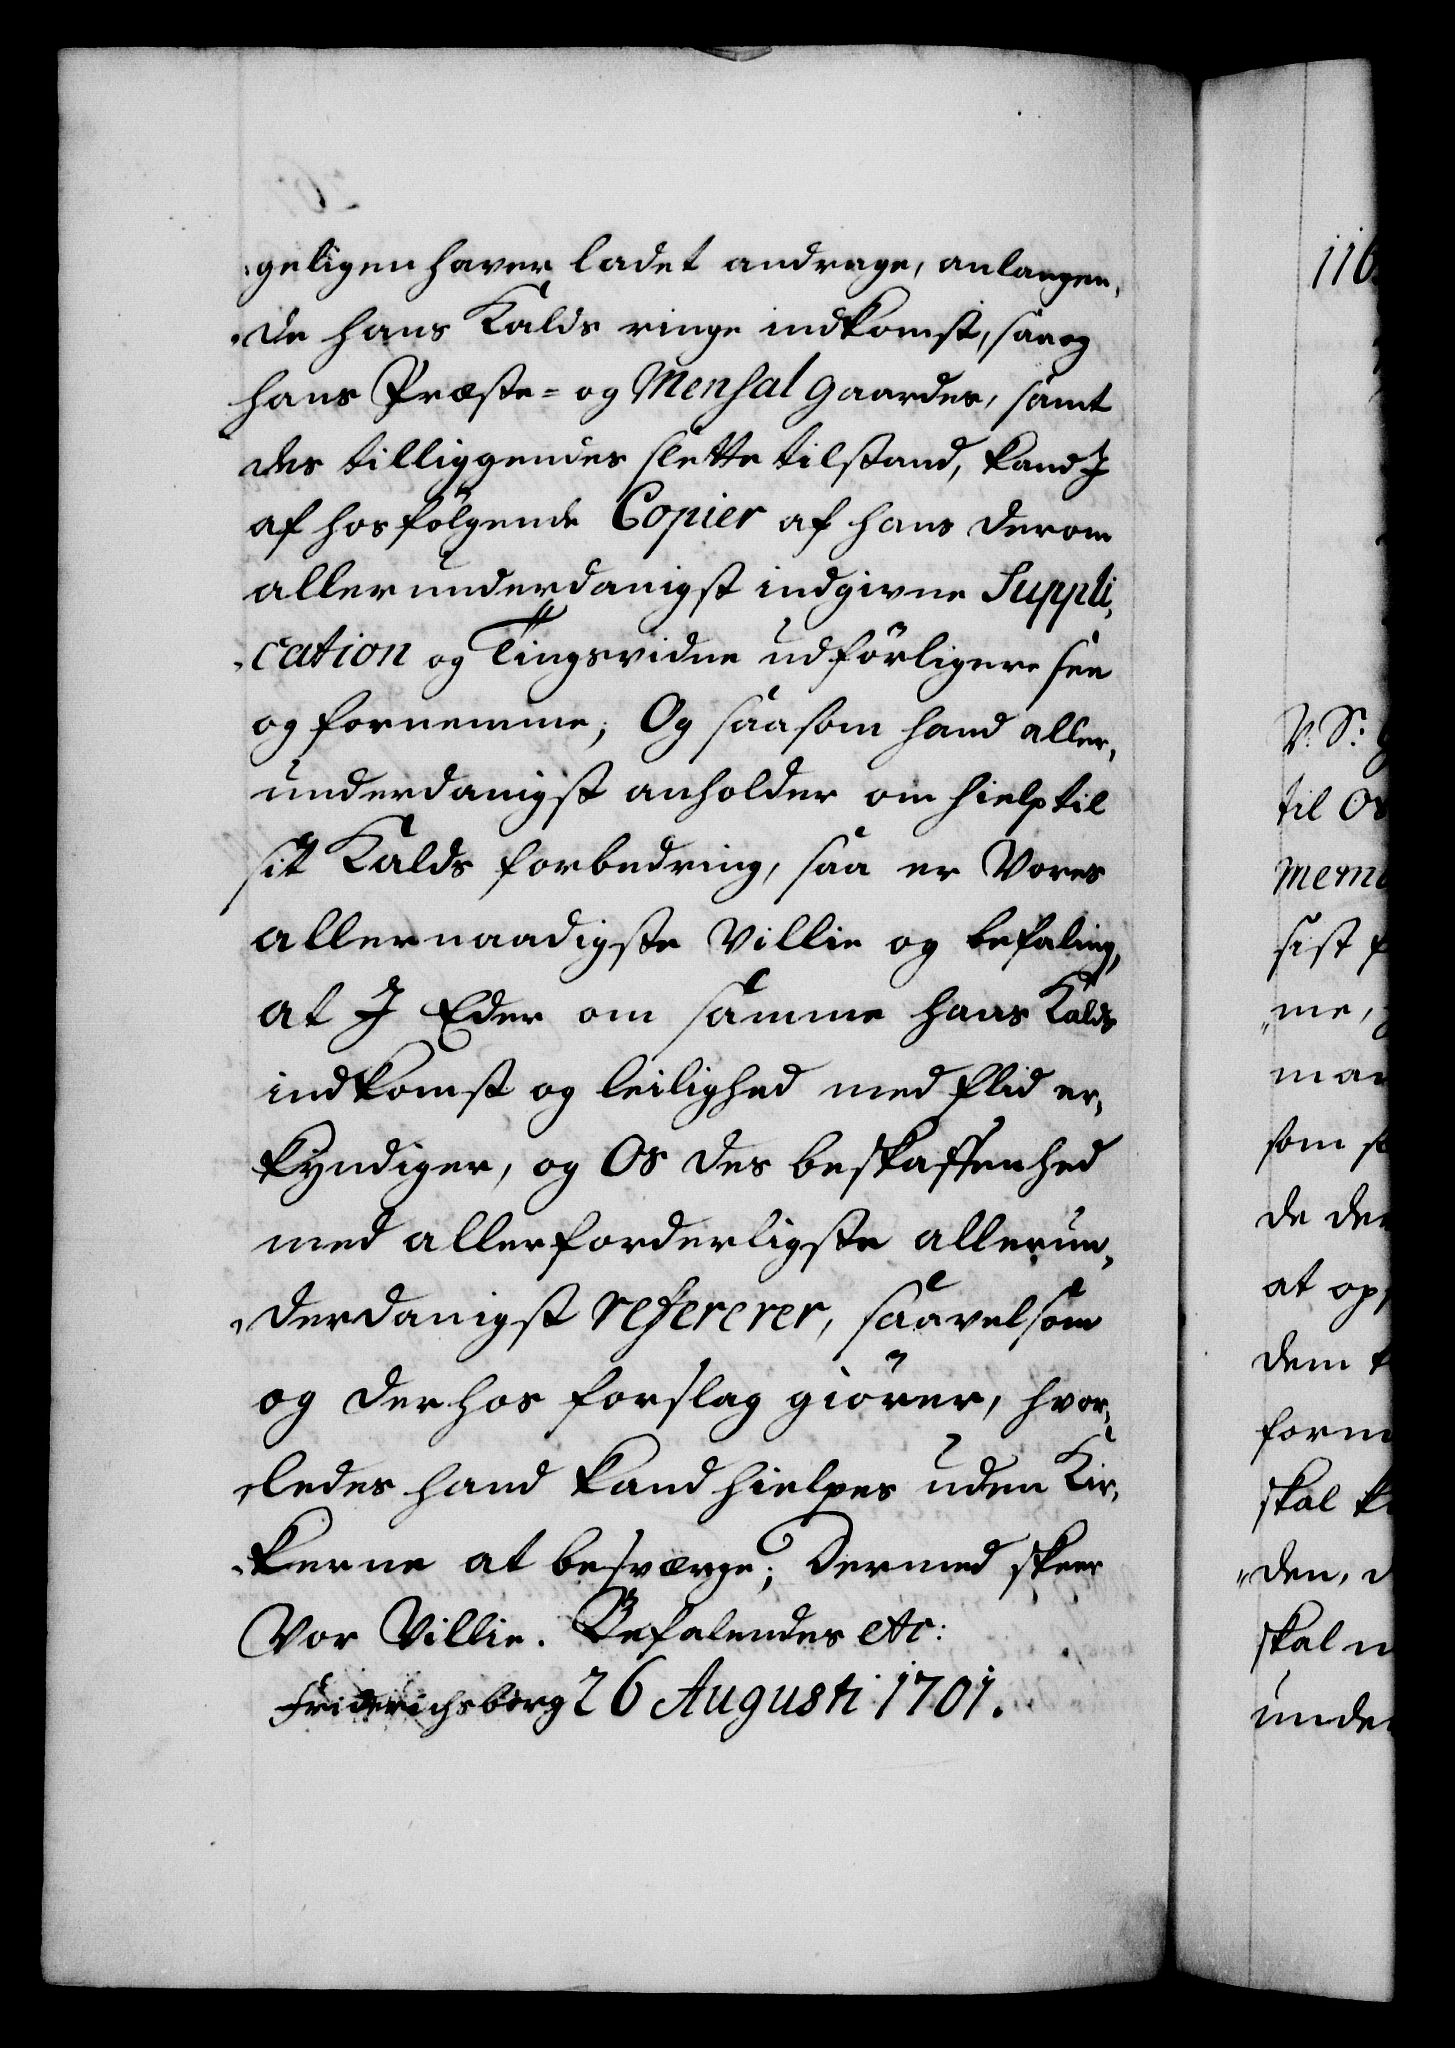 geligen haver ladet andrage, anlangen,
de hans Kalds ringe indkomst, saa og
hans Præste= og Mensal gaardes, samt
des tilliggendes slette tilstand, kand I
af hosfölgende Copier af hans derom
allerunderdanigst indgivne Suppli,
cation og Tingsvidne udförligere see
og fornemme; Og saasom hand aller,
underdanigst anholder om hielp til
sit Kalds forbedring, saa er Vores
allernaadigste Villie og befaling,
at I Eder om samme hans Kalds
indkomst og leilighed med flid er,
kyndiger, og Os des beskaffenhed
med allerforderligste allerun,
derdanigst refererer, saavelsom
og derhos forslag giörer, hvor,
ledes hand kand hielpes uden Kir,
kerne at besværge; Dermed skeer
Vor Villie. Befalendes etc:
Friderichsborg 26 Augusti 1701.
116
V. Sr:
til Os
mem
sist
me,
man
som
de
at op
dem
form
skal
den,
skal
under